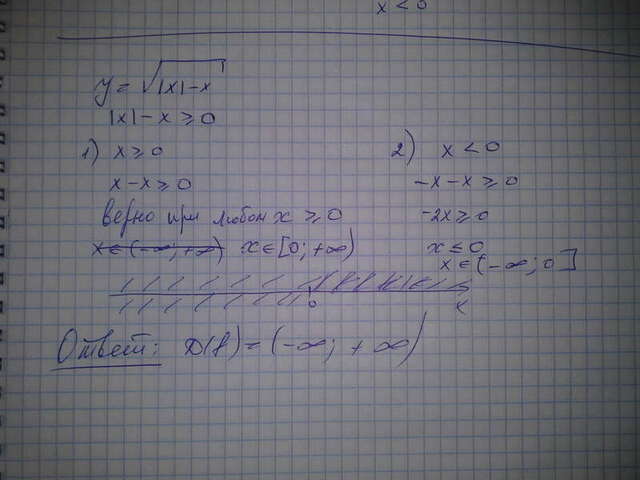 x < 0
y = √|x|-x
|x| - x ≥ 0
1) x ≥ 0
x - x ≥ 0
верно при любом x ≥ 0
x ∈ (-∞; +∞) x ∈ [0; +∞)
2) x < 0
-x - x ≥ 0
-2x ≥ 0
x ≤ 0
x ∈ (-∞; 0]
0 x
Ответ: D(f) = (-∞; +∞)